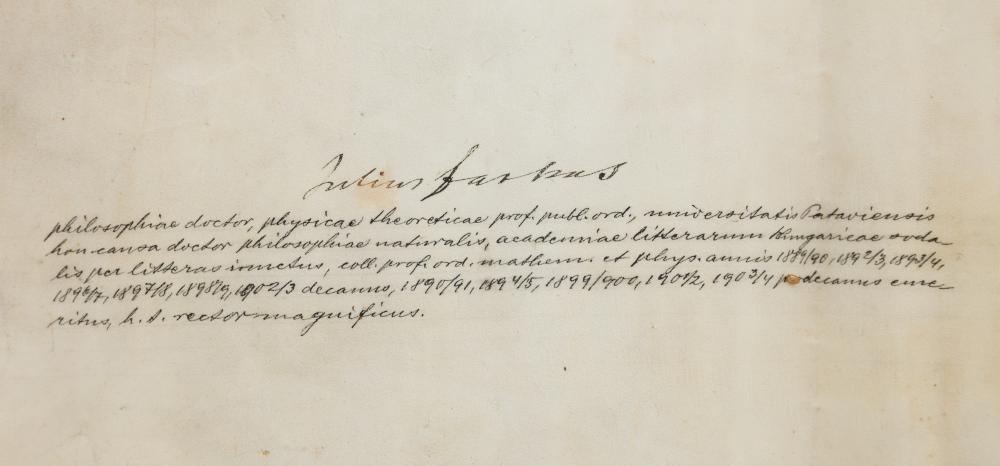 Julius Farkas
philosophiae doctor, physicae theoreticae prof. publ. ord., universitatis Pataviensis
hon. causa doctor philosophiae naturalis, academiae litterarum Hungaricae soda-
lis per litteras iunctus, coll. prof. ord. mathem. et phys. annis 1889/90, 1892/3, 1893/4,
1896/7, 1897/8, 1898/9, 1902/3 decanus, 1890/91, 1894/5, 1899/900, 1901/2, 1903/4 prodecanus eme-
ritus, h. t. rector magnificus.